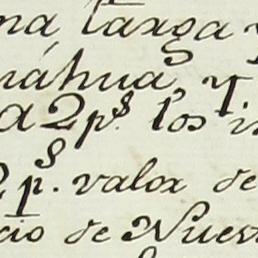 na larga y
náhua, y
a 2 p.s los i
2 p.s valor de
cio de Nues